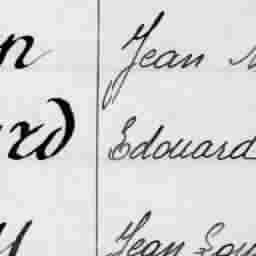 n Jean
rd Edouard
Jean Lou